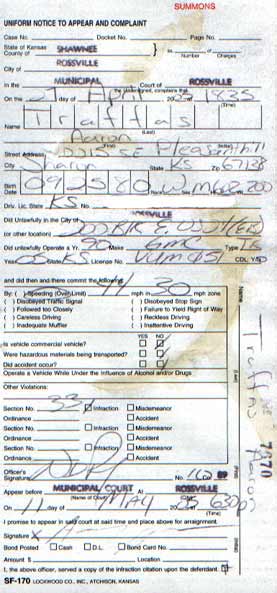 SUMMONS
UNIFORM NOTICE TO APPEAR AND COMPLAINT
Case No. Docket No. Page No.
State of Kansas SHAWNEE
County of ss. Number of Charges
City of ROSSVILLE
In the MUNICIPAL Court of ROSSVILLE
the undersigned, complains that
On the 27 day of April 1835
(Time)
Name Traffas
(Last)
Aaron
(First)
Street Address Pleasant Hill
City Sharon State KS Zip 67138
Birth Date 092580 W M 602 200
Driv. Lic. State KS No.
ROSSVILLE
Did Unlawfully in the City of
(or other location)
Did unlawfully Operate a Yr. 90 Make GMC Type
Year 05 KS License No. CDL Y/N
and did then and there commit the following:
By: ( ) Speeding (Over Limit) mph in 30 mph zone
( ) Disobeyed Traffic Signal ( ) Disobeyed Stop Sign
( ) Followed too Closely ( ) Failure to Yield Right of Way
( ) Careless Driving ( ) Reckless Driving
( ) Inadequate Muffler ( ) Inattentive Driving
YES NO
Is vehicle commercial vehicle?
Were hazardous materials being transported?
Did accident occur?
Operate a Vehicle While Under the Influence of Alcohol and/or Drugs
Other Violations:
Section No. 33 Infraction Misdemeanor
Ordinance Accident
Section No. Infraction Misdemeanor
Ordinance Accident
Section No. Infraction Misdemeanor
Ordinance Accident
Officer's
Signature No.
Appear before MUNICIPAL COURT At ROSSVILLE
(Name of Court)
On 11 day of MAY 630p
(Time)
I promise to appear in said court at said time and place above for arraignment.
Signature X
Bond Posted Cash D.L. Bond Card No.
Amount $ Location
I, the above officer, served a copy of the infraction citation upon the defendant.
SF-170 LOCKWOOD CO., INC., ATCHISON, KANSAS
Name
Traffas Aaron
(Last)
(First)
7870
No.